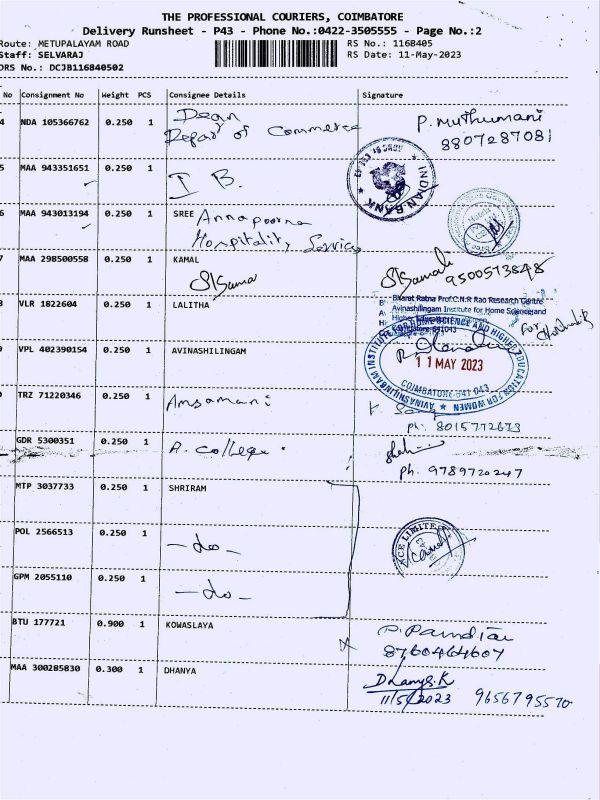 THE PROFESSIONAL COURIERS, COIMBATORE
Delivery Runsheet - P43 - Phone No.:0422-3505555 - Page No.:2
Route: METUPALAYAM ROAD RS No.: 1168405
Staff: SELVARAJ RS Date: 11-May-2023
DRS No.: DCJB116840502
No Consignment No Weight PCS Consignee Details Signature
4 NDA 105366762 0.250 1 Dean P. Muthumani
Depart of Commerce 8807287081
5 MAA 943351651 0.250 1 I B. INDIAN BANK
6 MAA 943013194 0.250 1 SREE Annapoorna
Hospitality Services
7 MAA 298500558 0.250 1 KAMAL
9500573848
8 VLR 1822604 0.250 1 LALITHA
Bharat Ratna Prof.C.N.R Rao Research Centre
Avinashilingam Institute for Home Science and
641043
9 VPL 402390154 0.250 1 AVINASHILINGAM
AVINASHILINGAM INSTITUTE FOR HOME SCIENCE AND HIGHER EDUCATION FOR WOMEN
11 MAY 2023
COIMBATORE-641 043
TRZ 71220346 0.250 1 Amsamani
ph: 8015772673
GDR 5300351 0.250 1 A. College.
ph. 9789720247
MTP 3037733 0.250 1 SHRIRAM
POL 2566513 0.250 1 -do-
GPM 2055110 0.250 1 -do-
BTU 177721 0.900 1 KOWASLAYA P. Pandian
8760464607
MAA 300285830 0.300 1 DHANYA Dhanya.K
11/5/2023 9656795570